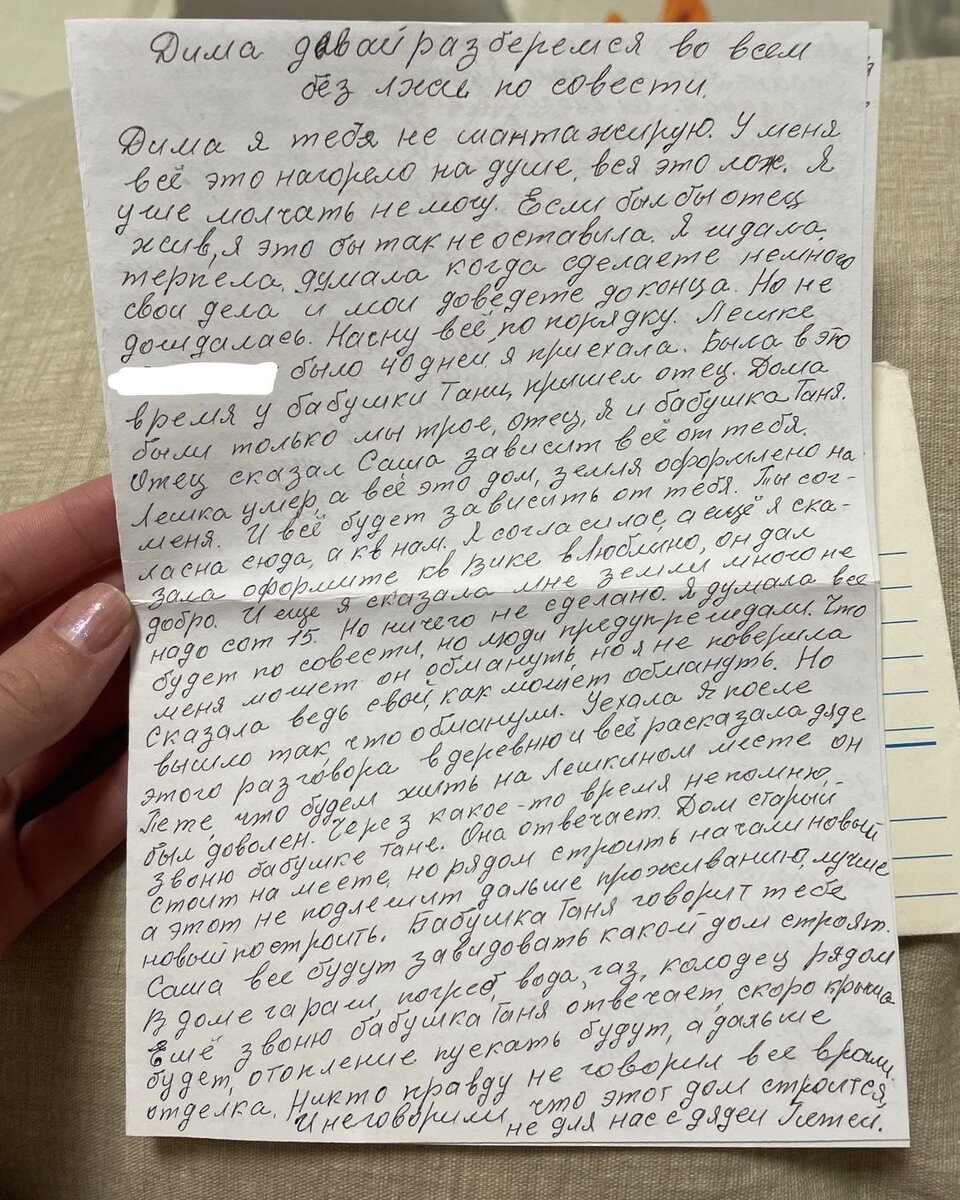 Дима давай разберемся во всем
без лжи, по совести.
Дима я тебя не шантажирую. У меня
всё это нагорело на душе, вся это лож. Я
уше молчать не могу. Если был бы отец
жив, я это бы так не оставила. Я ждала,
терпела, думала когда сделаете немного
свои дела и мои доведете до конца. Но не
дождалась. Начну всё, по порядку. Лешке
было 40 дней, я приехала. Была в это
время у бабушки Тани, пришел отец. Дома
были только мы трое, отец, я и бабушка Таня.
Отец сказал Саша зависит всё от тебя.
Лешка умер, а всё это дом, земля оформлено на
меня. И всё будет зависить от тебя. Ты сог-
ласна сюда, а кв нам. Я согласилас, а ещё я ска-
зала оформите кв Вике в Люблино, он дал
добро. И еще я сказала мне земли много не
надо сот 15. Но ничего не сделано. Я думала все
будет по совести, но люди предупреждали. Что
меня может он обмануть, но я не поверила
сказала ведь свой, как может обмануть. Но
вышло так, что обманули. Уехала я после
этого разговора в деревню и всё расказала дяде
Пете, что будем жить на Лешкином месте он
был доволен. Через какое-то время не помню,
звоню бабушке Тане. Она отвечает. Дом старый
стоит на месте, но рядом строить начали новый
а этот не подлежит дальше проживанию, лучше
новый построить. Бабушка Таня говорит тебе
Саша все будут завидовать какой дом строят.
В доме гараж, погреб, вода, газ, колодец рядом
Ешё звоню бабушка Таня отвечает, скоро крыша
будет, отопление пускать будут, а дальше
отделка. Никто правду не говорил все врали.
И не говорили, что этот дом строится
не для нас с дядей Петей.